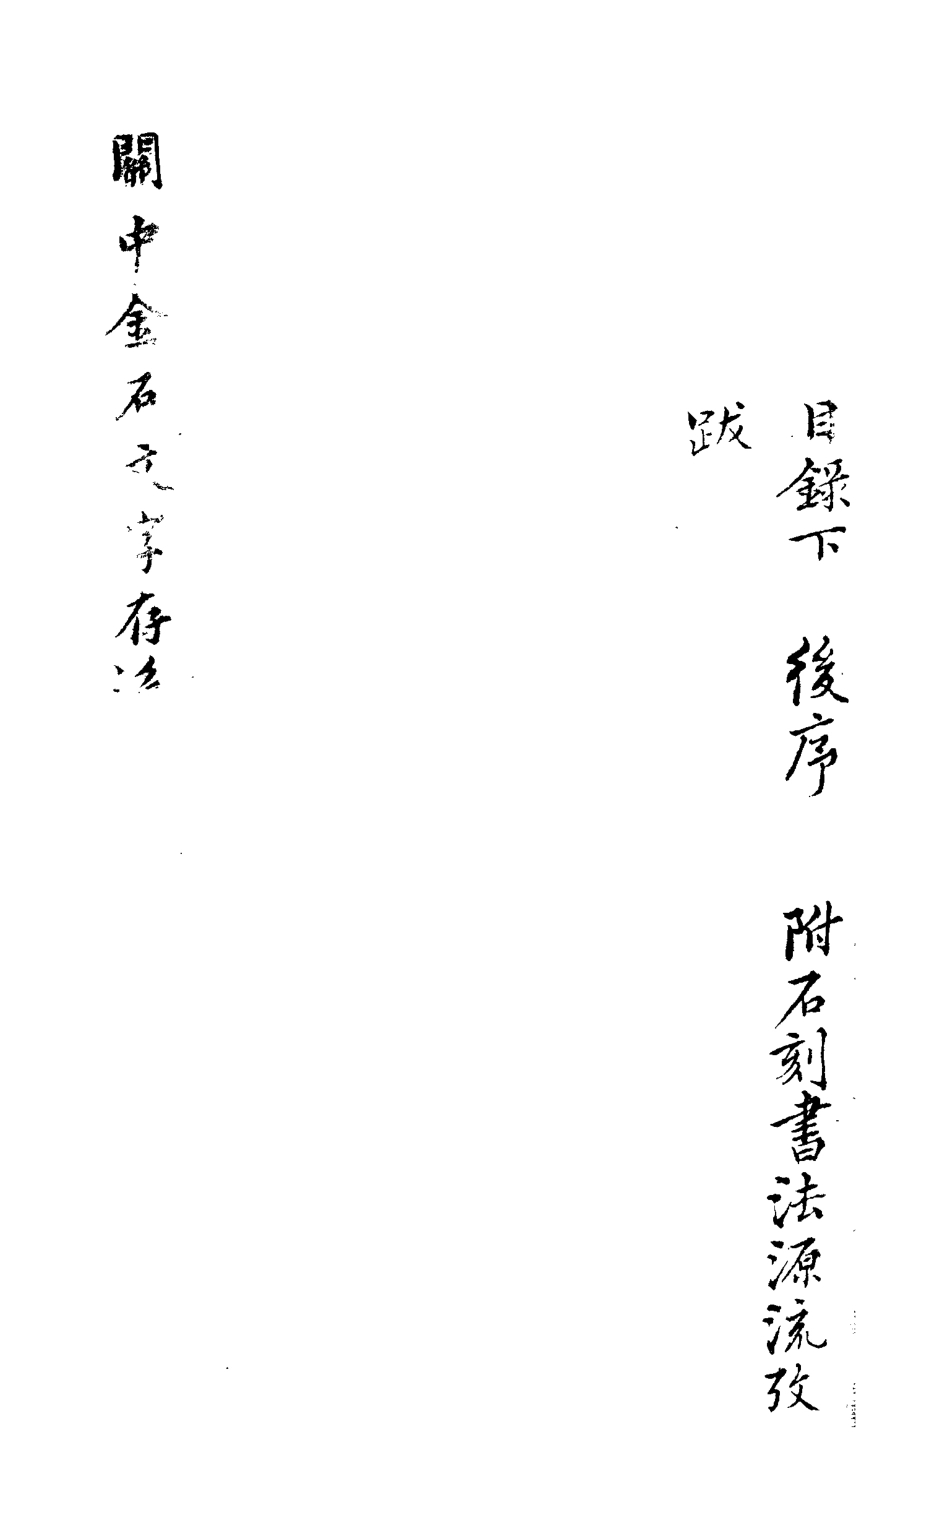 目錄下　後序　附石刻書法源流攷
跋
關中金石文字存逸